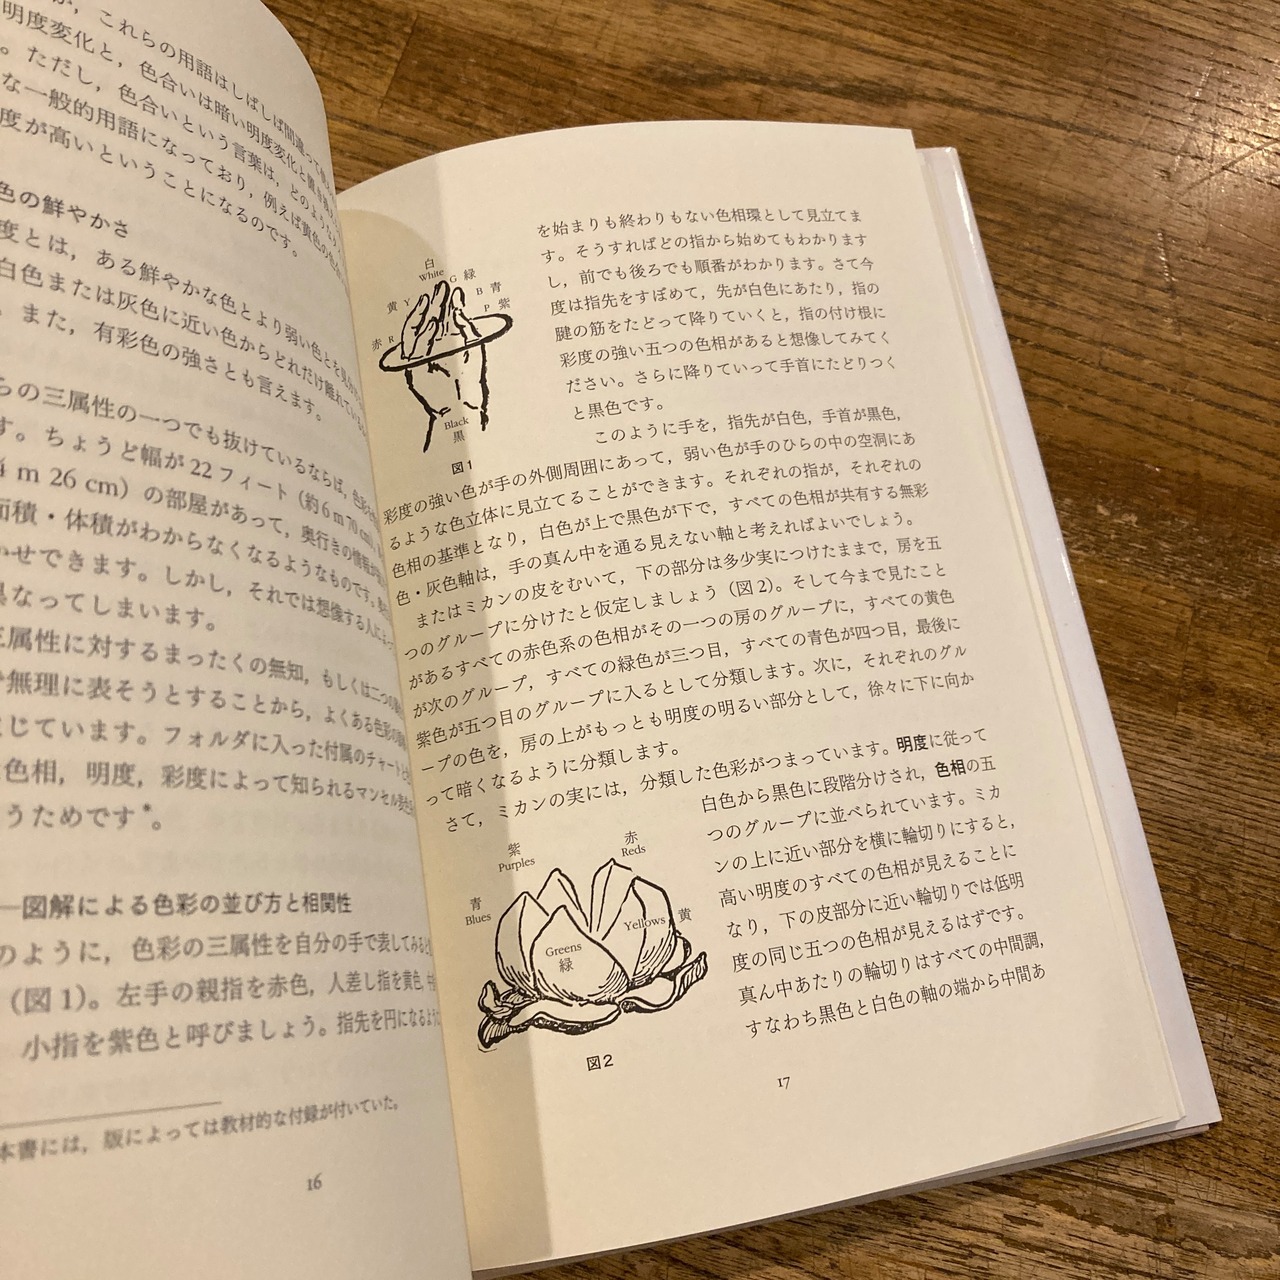 これらの用語はしばしば間違って
明度変化と，色合いは暗い明度変化と置き換え
。ただし，色合いという言葉は，どのような
な一般的用語になっており，例えば黄色の色
度が高いということになるのです。
色の鮮やかさ
度とは，ある鮮やかな色とより弱い色とを
白色または灰色に近い色からどれだけ離れている
。また，有彩色の強さとも言えます。
らの三属性の一つでも抜けているならば，色彩
す。ちょうど幅が22フィート（約6 m 70 cm），
4 m 26 cm）の部屋があって，奥行きの情報が
面積・体積がわからなくなるようなものです。
かせできます。しかし，それでは想像する人によって
異なってしまいます。
三属性に対するまったくの無知，もしくは二つの
で無理に表そうとすることから，よくある色彩の
生じています。フォルダに入った付属のチャート
色相，明度，彩度によって知られるマンセル
うためです*。
—図解による色彩の並び方と相関性
のように，色彩の三属性を自分の手で表してみると
（図1）。左手の親指を赤色，人差し指を黄色，中
小指を紫色と呼びましょう。指先を円になるように
本書には，版によっては教材的な付録が付いていた。
16
白
White
G 緑
黄 Y
B 青
P 紫
赤 R
Black
黒
図1
を始まりも終わりもない色相環として見立てま
す。そうすればどの指から始めてもわかります
し，前でも後ろでも順番がわかります。さて今
度は指先をすぼめて，先が白色にあたり，指の
腱の筋をたどって降りていくと，指の付け根に
彩度の強い五つの色相があると想像してみてく
ださい。さらに降りていって手首にたどりつく
と黒色です。
このように手を，指先が白色，手首が黒色，
彩度の強い色が手の外側周囲にあって，弱い色が手のひらの中の空洞にあ
るような色立体に見立てることができます。それぞれの指が，それぞれの
色相の基準となり，白色が上で黒色が下で，すべての色相が共有する無彩
色・灰色軸は，手の真ん中を通る見えない軸と考えればよいでしょう。
またはミカンの皮をむいて，下の部分は多少実につけたままで，房を五
つのグループに分けたと仮定しましょう（図2）。そして今まで見たこと
があるすべての赤色系の色相がその一つの房のグループに，すべての黄色
が次のグループ，すべての緑色が三つ目，すべての青色が四つ目，最後に
紫色が五つ目のグループに入るとして分類します。次に，それぞれのグル
ープの色を，房の上がもっとも明度の明るい部分として，徐々に下に向か
って暗くなるように分類します。
さて，ミカンの実には，分類した色彩がつまっています。明度に従って
白色から黒色に段階分けされ，色相の五
つのグループに並べられています。ミカ
ンの上に近い部分を横に輪切りにすると，
高い明度のすべての色相が見えることに
なり，下の皮部分に近い輪切りでは低明
度の同じ五つの色相が見えるはずです。
真ん中あたりの輪切りはすべての中間調，
すなわち黒色と白色の軸の端から中間あ
紫
Purples
赤
Reds
青
Blues
Yellows 黄
Greens
緑
図2
17